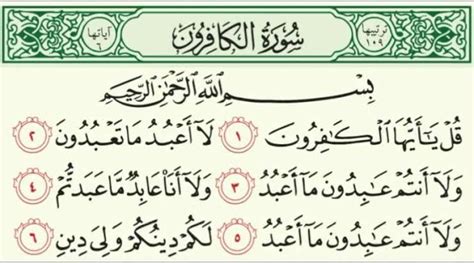 ترتيبها ١٠٩ سُورَةُ الكَافِرُونَ آياتها ٦
بِسْمِ اللَّهِ الرَّحْمَٰنِ الرَّحِيمِ
قُلْ يَٰٓأَيُّهَا ٱلْكَٰفِرُونَ ١ لَآ أَعْبُدُ مَا تَعْبُدُونَ ٢
وَلَآ أَنتُمْ عَٰبِدُونَ مَآ أَعْبُدُ ٣ وَلَآ أَنَا۠ عَابِدٌ مَّا عَبَدتُّمْ ٤
وَلَآ أَنتُمْ عَٰبِدُونَ مَآ أَعْبُدُ ٥ لَكُمْ دِينُكُمْ وَلِيَ دِينِ ٦